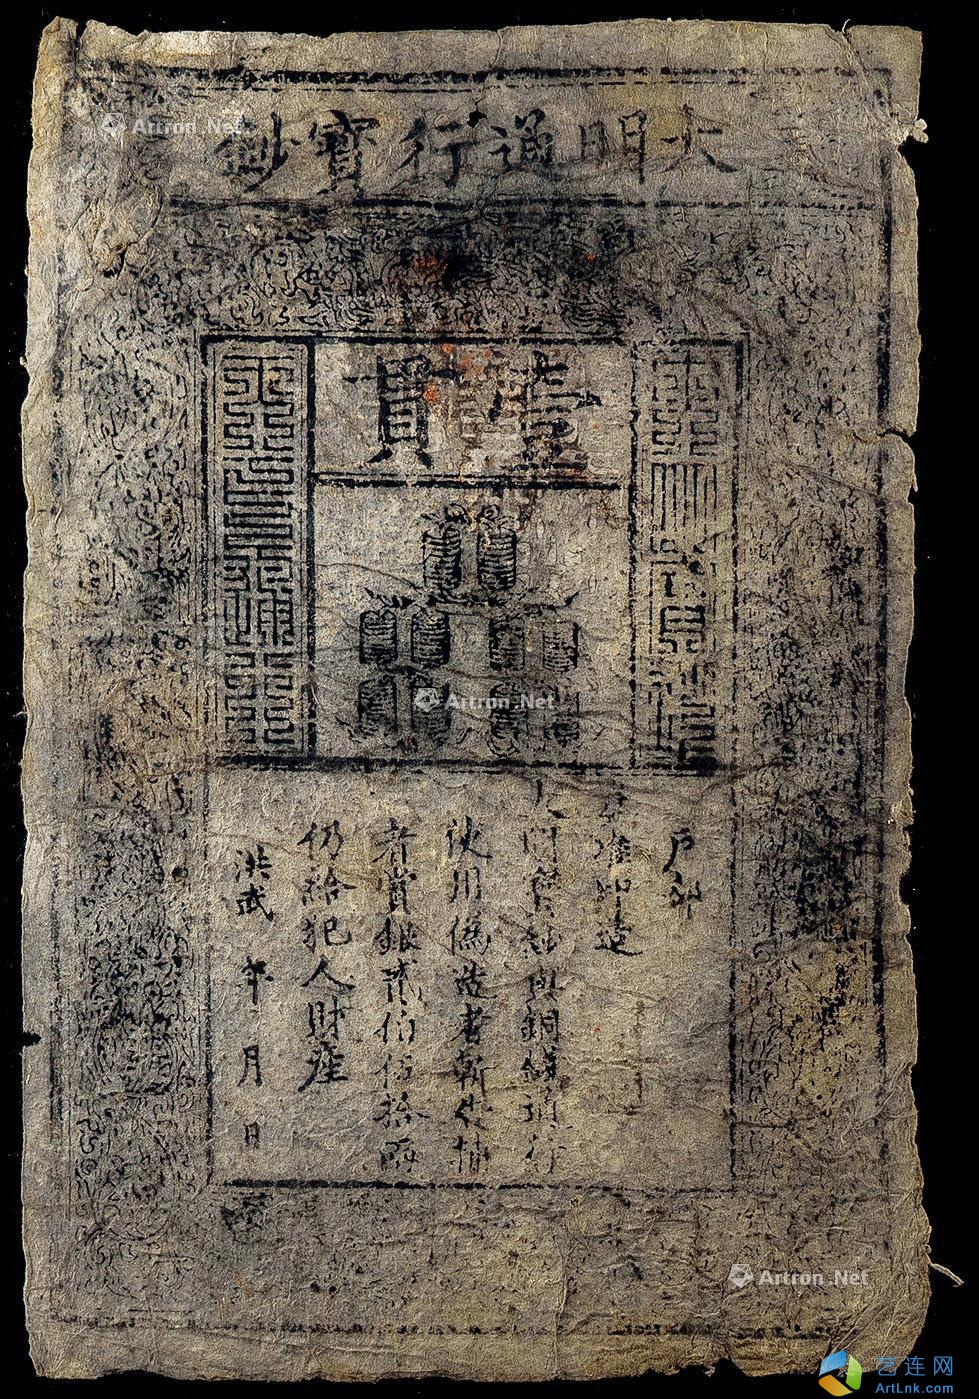 大明通行寶鈔
壹貫
戶部
奏准印造
大明寶鈔與銅錢通行
使用偽造者斬告捕
者賞銀貳伯伍拾兩
仍給犯人財產
洪武 年 月 日
Artron.Net
Artron.Net
Artron.Net
艺连网
ArtLnk.com